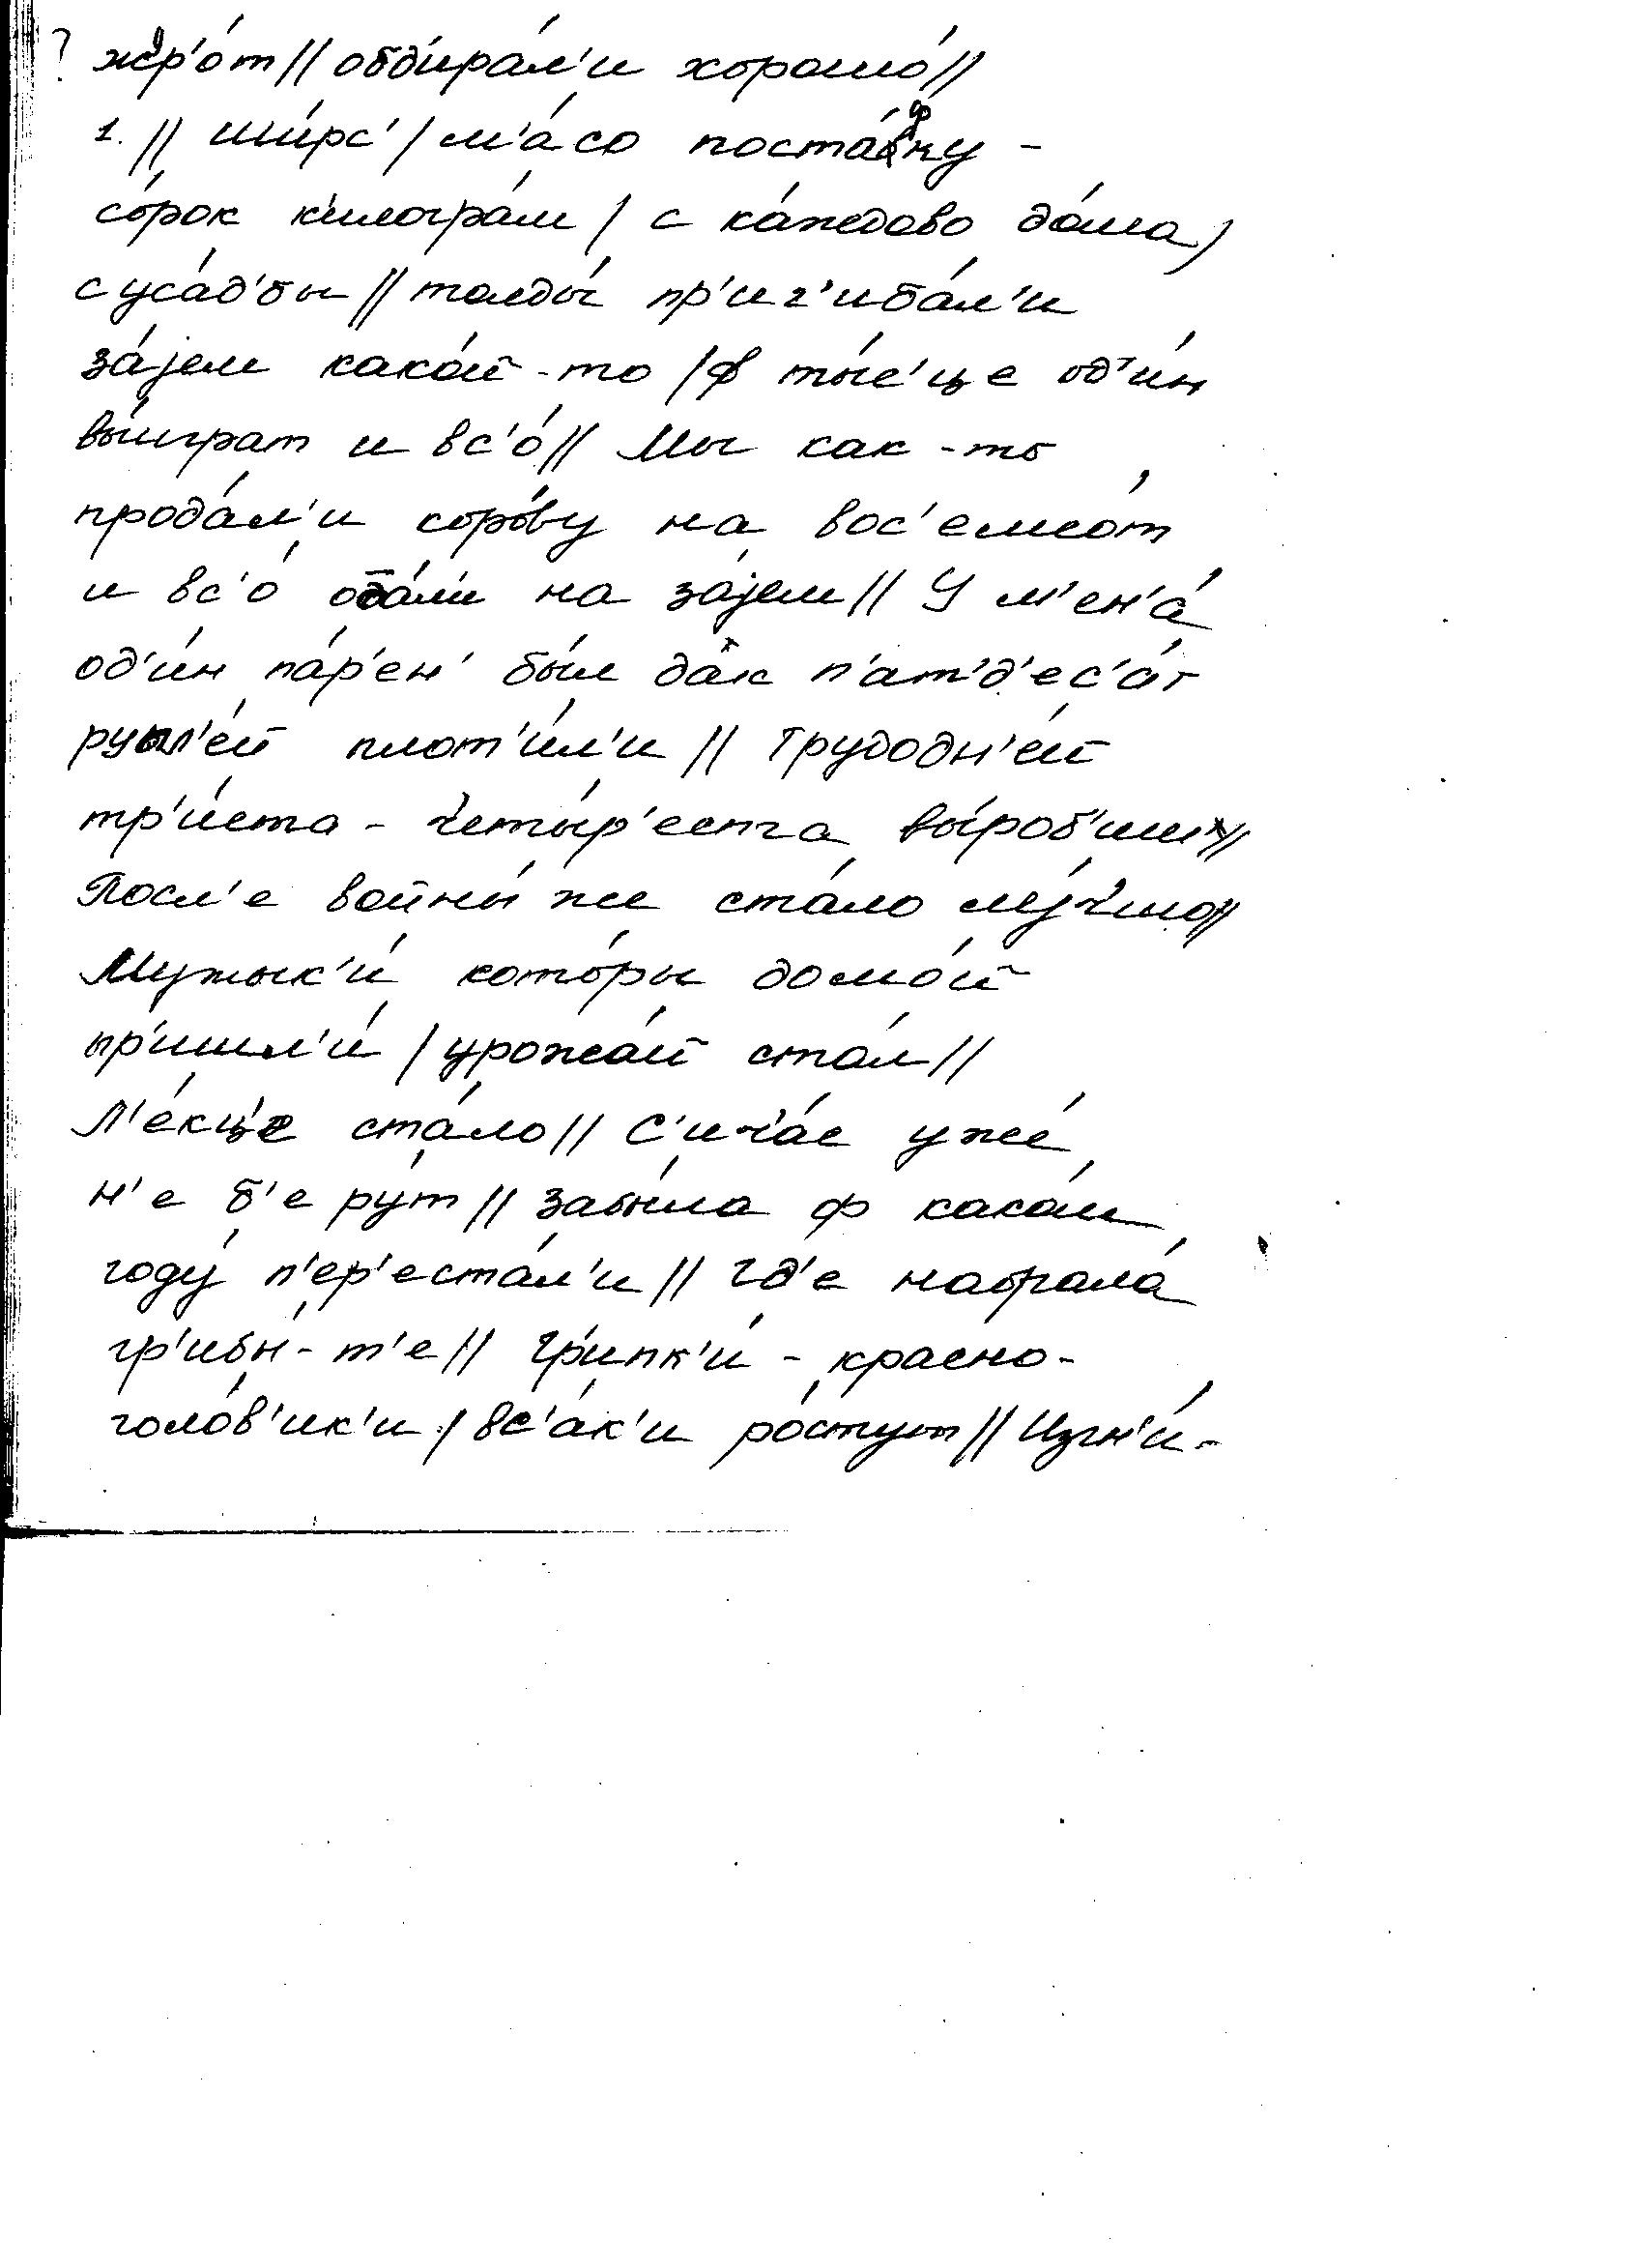 ? жер'о́т // обд'ира́л'и хорошо́ //
1. // ши́рс' / м'а́со поста́фку -
со́рок к'илогра́м / с ка́ждово до́ма /
с уса́д'бы // толды́ пр'иг'иба́л'и
за́јем како́й-то / ф ты́с'це од'и́н
вы́играт и вс'о́ // Мы как-то
прода́л'и коро́ву на вос'емсо́т
и вс'о́ отда́л'и на за́јем // У м'ен'а́
од'и́н па́р'ен' бы́л да́к п'ат'д'ес'а́т
рубл'е́й плот'и́л'и // Трудодн'е́й
тр'и́ста - четы́р'еста вы́роб'иш //
Посл'е войны́ же ста́ло лу́чшо //
Мужык'и́ кото́ры домо́й
пр'ишл'и́ / урожа́й ста́л //
Л'е́кц'е ста́ло // С'ича́с уже́
н'е б'еру́т // забы́ла ф како́м
году́ п'ер'еста́л'и // Гд'е набрала́
гр'ибы́-т'е // Гр'ипк'и́ - красно-
голо́в'ик'и / вс'а́к'и росту́т // Изгн'и́-